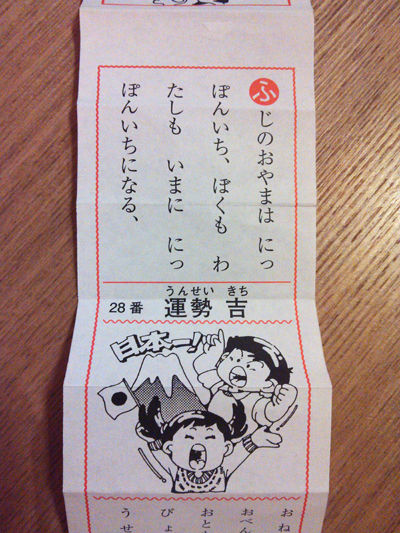 ふじのおやまは にっ
ぽんいち、ぼくも わ
たしも いまに にっ
ぽんいちになる、
うんせい きち
28番 運勢 吉
日本一!
おね
おべん
おとた
びょ
うせ